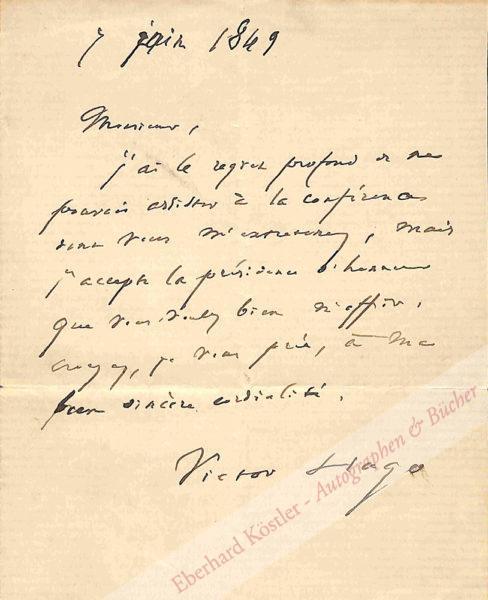 7 juin 1849
Monsieur,
j'ai le regret profond de ne
pouvoir assister à la conférence
dont vous m'entretenez, mais
j'accepte la présidence d'honneur
que vous voulez bien m'offrir.
croyez, je vous prie, à ma
bien sincère cordialité.
Victor Hugo
Eberhard Köstler - Autographen & Bücher